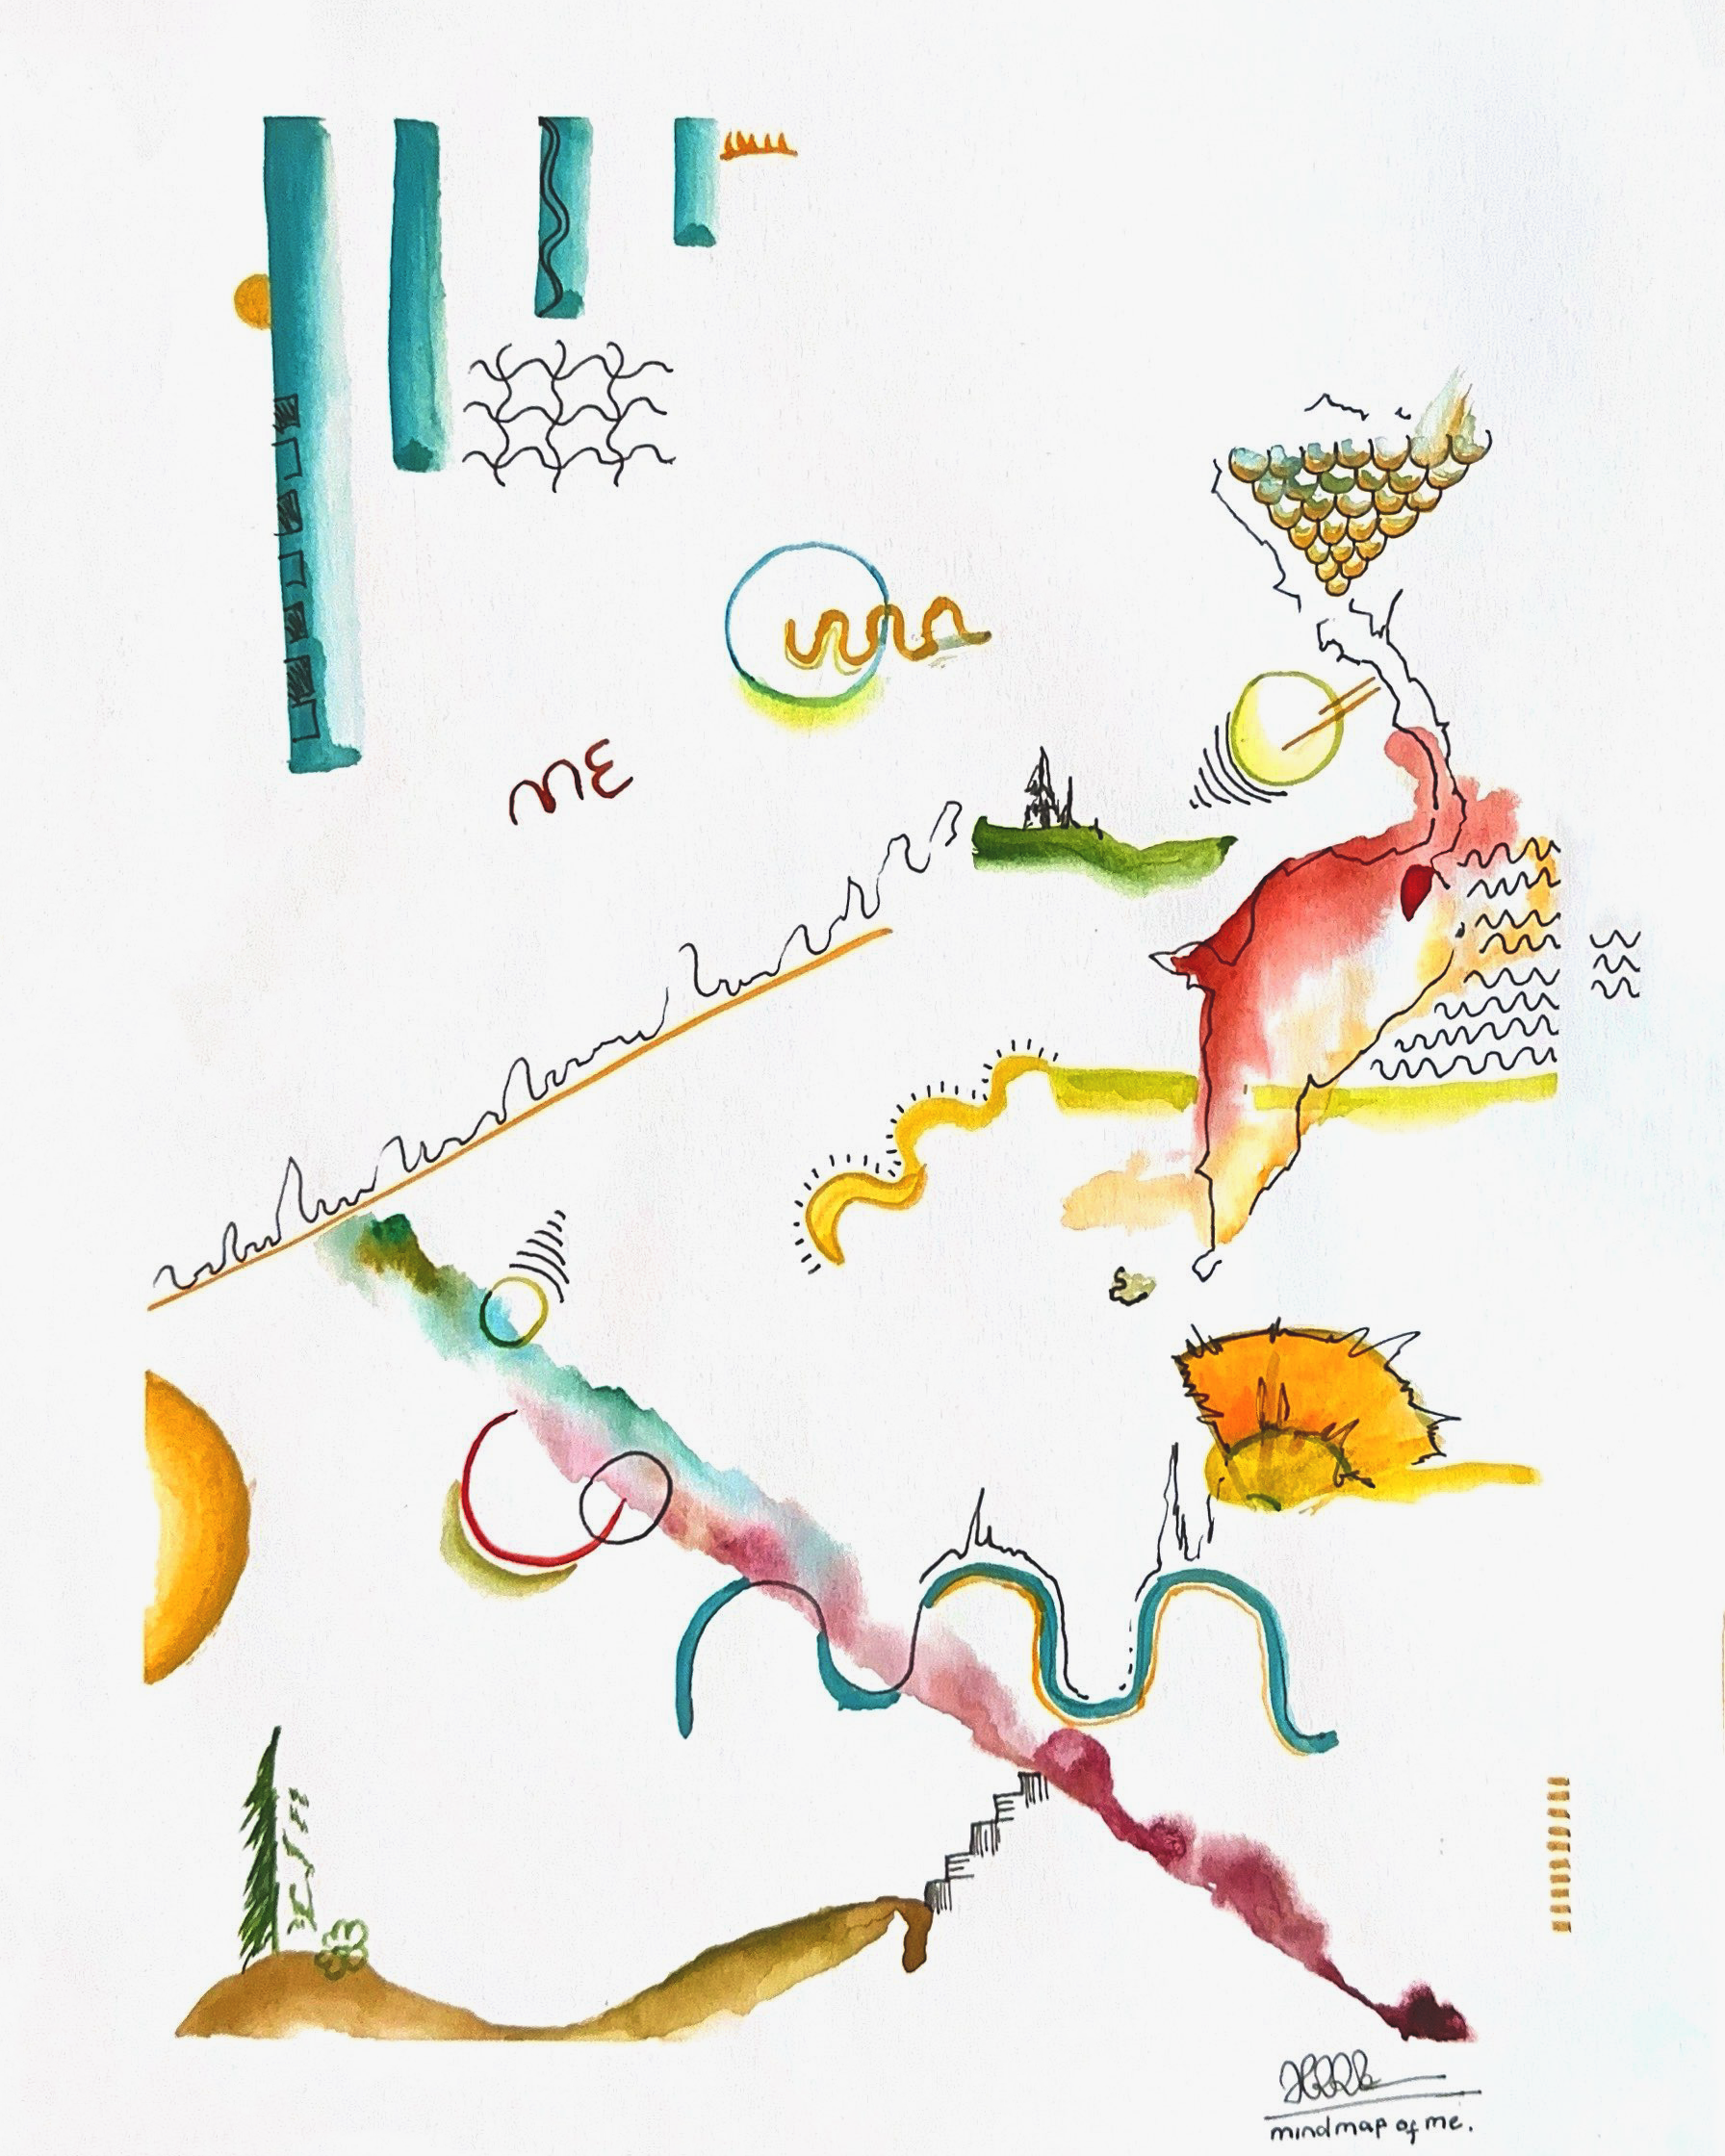 ME
mindmap of me.